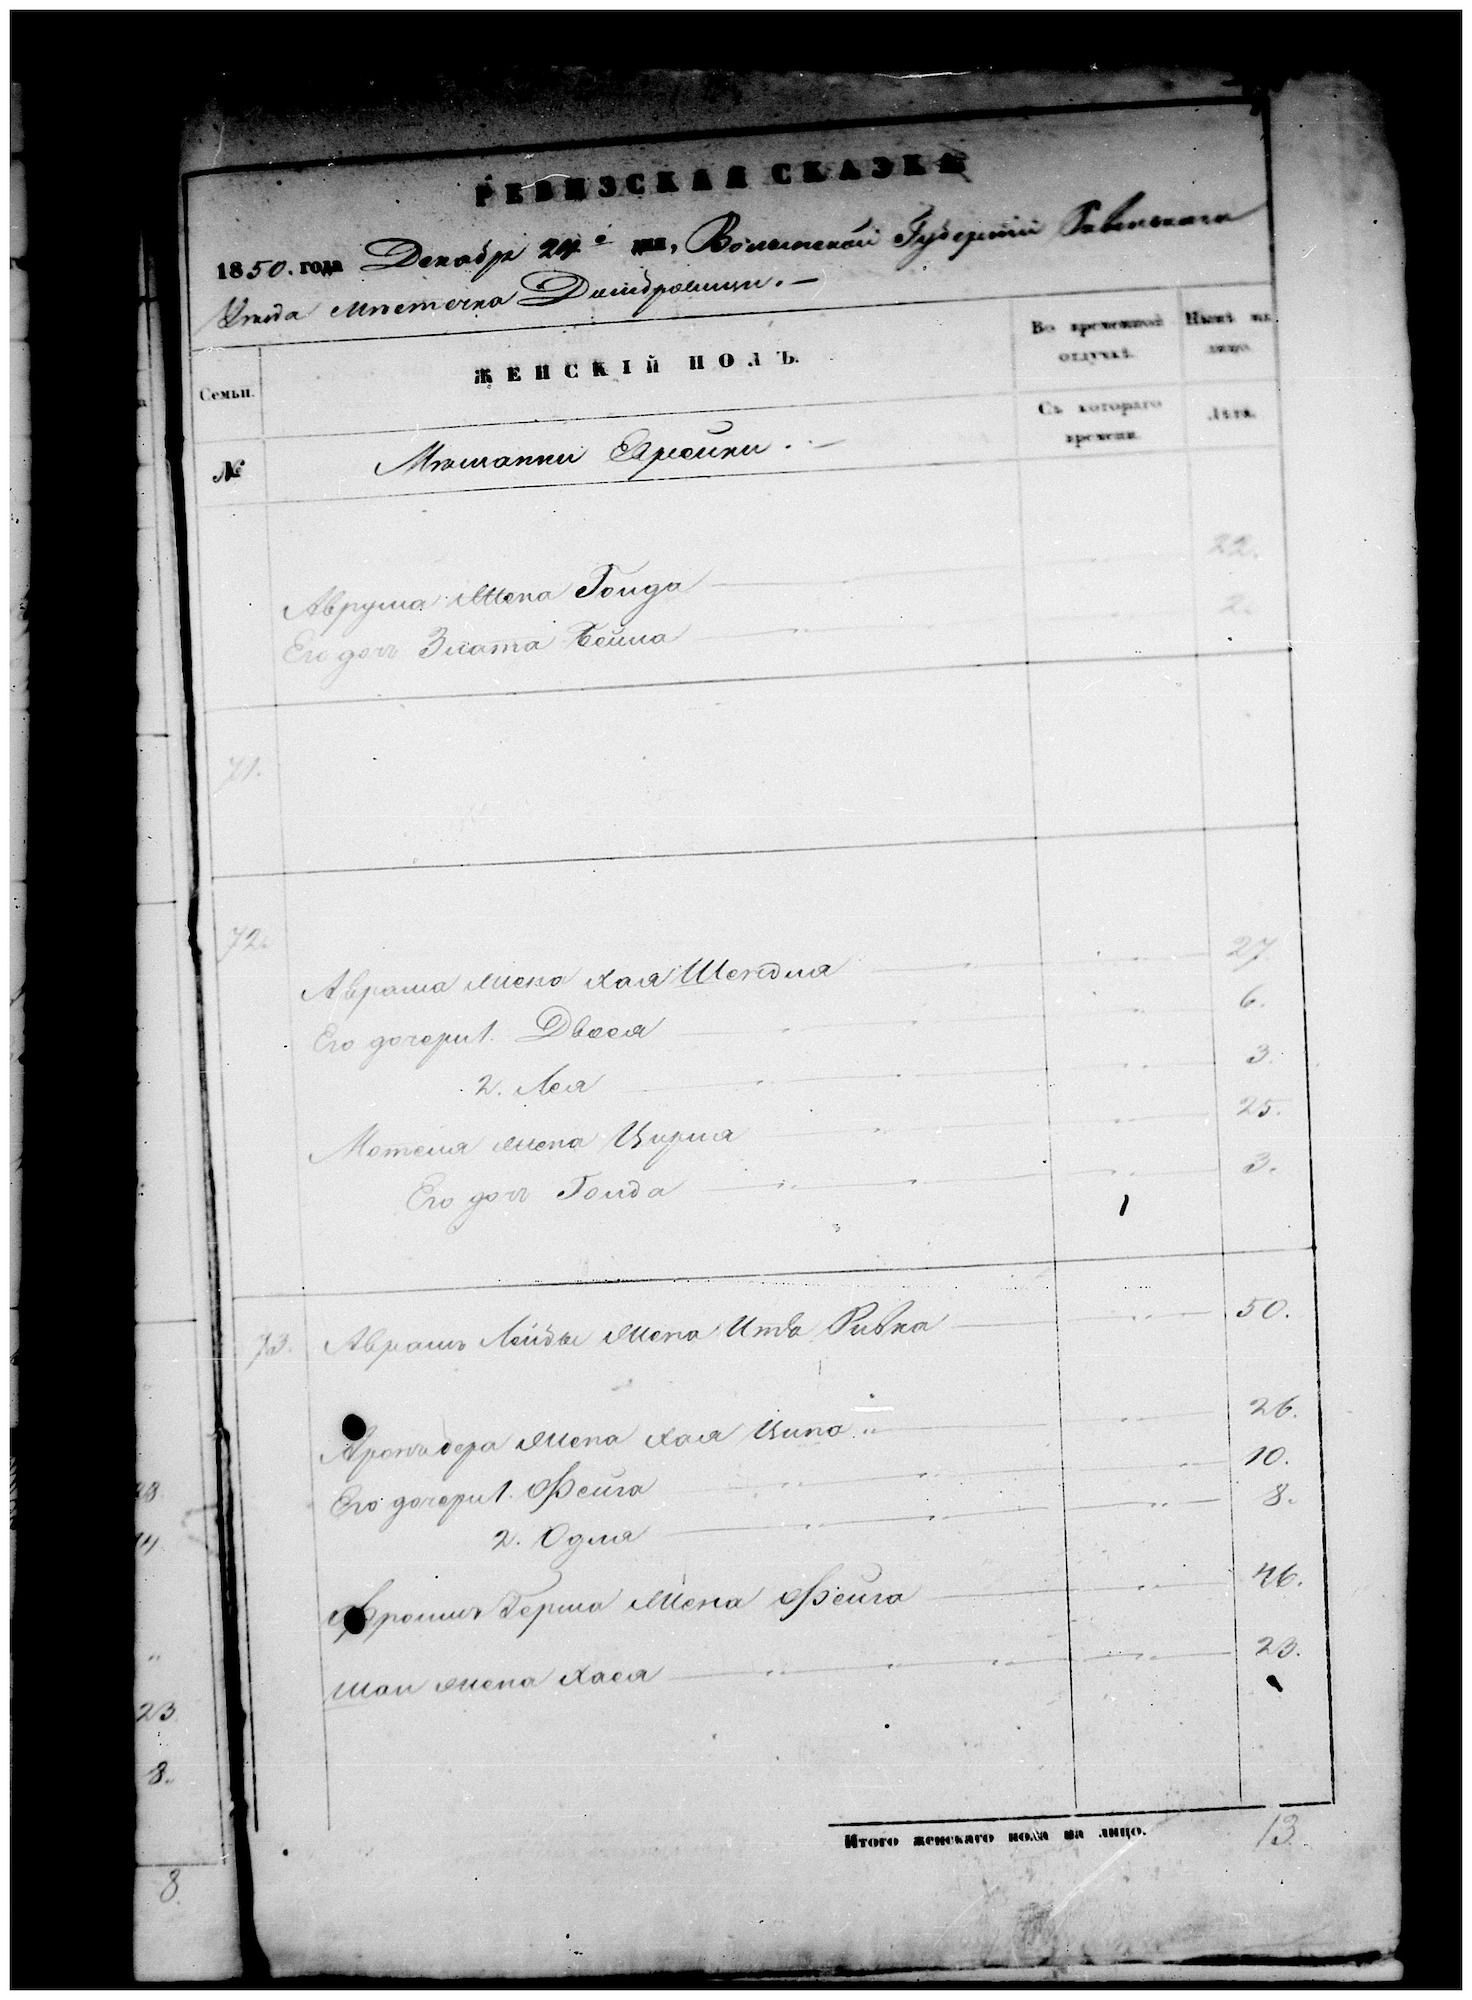 РЕВИЗСКАЯ СКАЗКА
1850. года Декабря 24 дня, Волынской Губернии Ровенскаго
Уезда местечка Домбровицы. —
Семьи.
ЖЕНСКІЙ ПОЛЪ.
Во временной отлучкѣ.
Нынѣ на лицо.
Съ котораго времени.
Лѣта.
№
Мѣщанки Еврейки. —
Аврума жена Голда 22.
Его дочь Злата Бейла 2.
71.
72.
Аврама жена Хая Шендля 27
Его дочери 1. Двося 6.
2. Лея 3.
Мотеля жена Цирля 25.
Его дочь Голда 3.
1
73. Аврамъ Лейбы жена Ита Ривка 50.
жена Хая Ципа 26.
Его дочери 1. Фейга 10.
2. Одля 8.
Герша жена Фейга 46.
жена Хася 23.
Итого женскаго пола на лицо. 13.
28
14
"
23
8.
8.